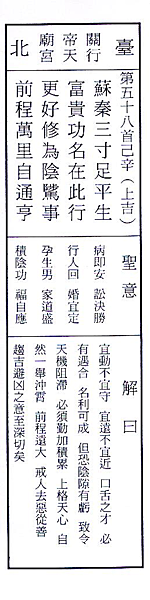 臺北
關帝廟
行天宮
第五十八首己辛（上吉）
蘇秦三寸足平生
富貴功名在此行
更好修為陰騭事
前程萬里自通亨
聖意
病即安　訟決勝
行人回　婚宜定
孕生男　家道盛
積陰功　福自應
解曰
宜動不宜守　宜遠不宜近　口舌之才　必
有遇合　名利可成　但恐陰隙有虧　致令
天機阻滯　必須勤加積累　上格天心　自
然一舉沖霄　前程遠大　戒人去惡從善
趨吉避凶之意至深切矣